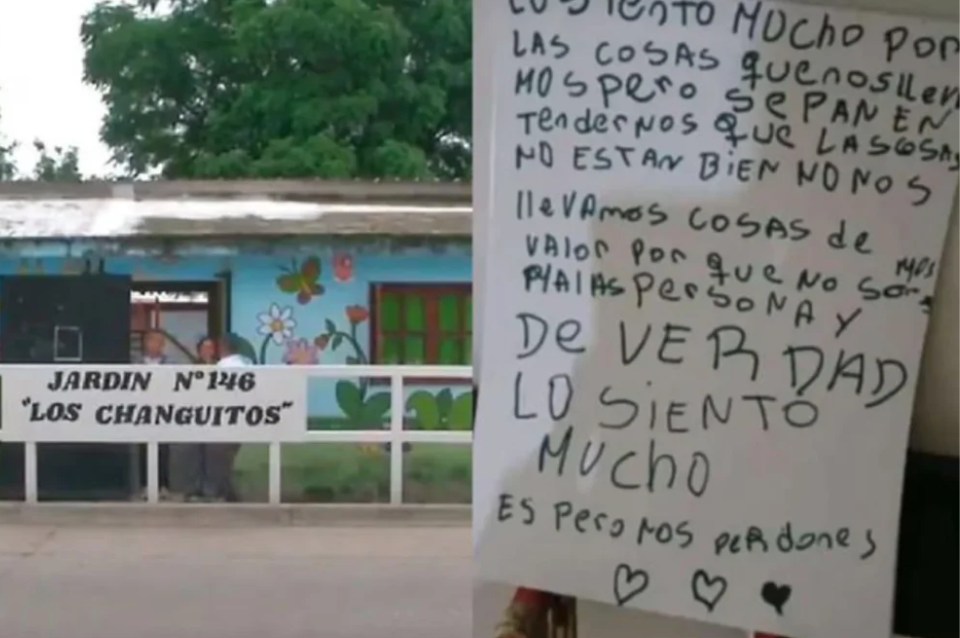 JARDIN Nº 146
"LOS CHANGUITOS"
LO SIENTO MUCHO POR
LAS COSAS quenosllev
MOS PerO SEPAN EN
TenderNOS QUE LAS COSAS
NO ESTAN BIEN NO NOS
llevAmos cosAs de
VAlor Por que NO SOMOS
MAlAS PersONA Y
De VERDAD
LO SIENTO
MUCHO
ES PerO NOS PERdoneS